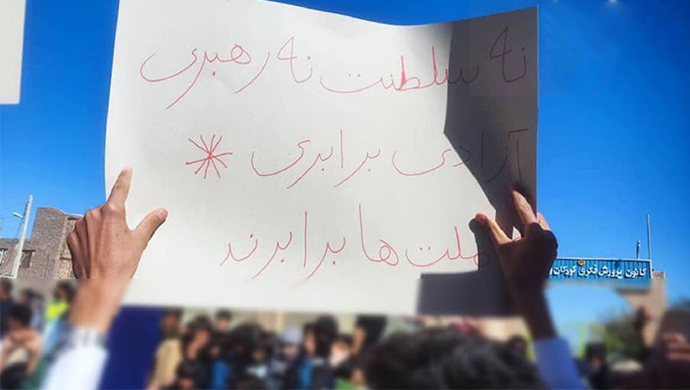 نه سلطنت نه رهبری
آزادی برابری *
ملت ها برابرند
کانون پرورش فکری کودکان